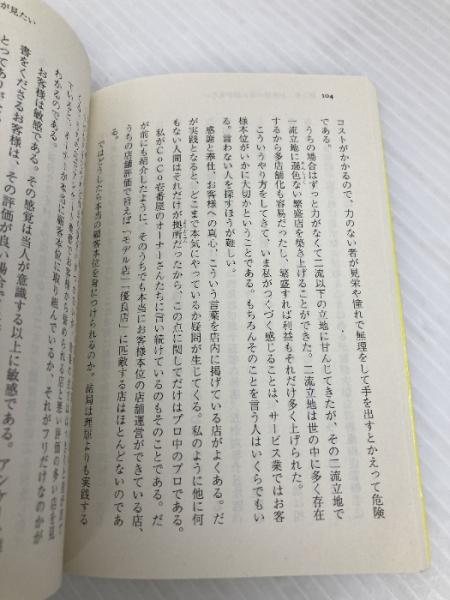 104
コストがかかるので、力のない者が見栄や憧れで無理をして手を出すとかえって危険
である。
うちの場合はずっと力がなくて二流以下の立地に甘んじてきたが、その二流立地で
一流立地に遜色ない繁盛店を築き上げることができた。二流立地は世の中に多く存在
するから多店舗化も容易だったし、繁盛すれば利益もそれだけ多く上げられた。
こういうやり方をしてきて、いま私がつくづく感じることは、サービス業ではお客
様本位がいかに大切かということである。もちろんそのことを言う人はいくらでもい
る。言わない人を探すほうが難しい。
感謝と奉仕、お客様への真心、こういう言葉を店内に掲げている店がよくある。だ
が実践となると、どこまで本気にやっているか疑問が生じてくる。私のように他に何
もない人間はそれだけが拠所だったから、この点に関してだけはプロ中のプロである。
私がCoCo壱番屋のオーナーさんたちに言い続けているのもそのことである。だ
が前にも紹介したように、そのうちでも本当にお客様本位の店舗運営ができている店、
うちの店舗評価で言えば「モデル店」「優良店」に匹敵する店はほとんどないのであ
る。
ではどうしたら本当の顧客本位を身につけられるのか。結局は理屈よりも実践する
が見たい
わかるのである。
お客様は敏感である。その感覚は当人が意識する以上に敏感である。アンケ
書をくださるお客様は、その評価が良い場合で